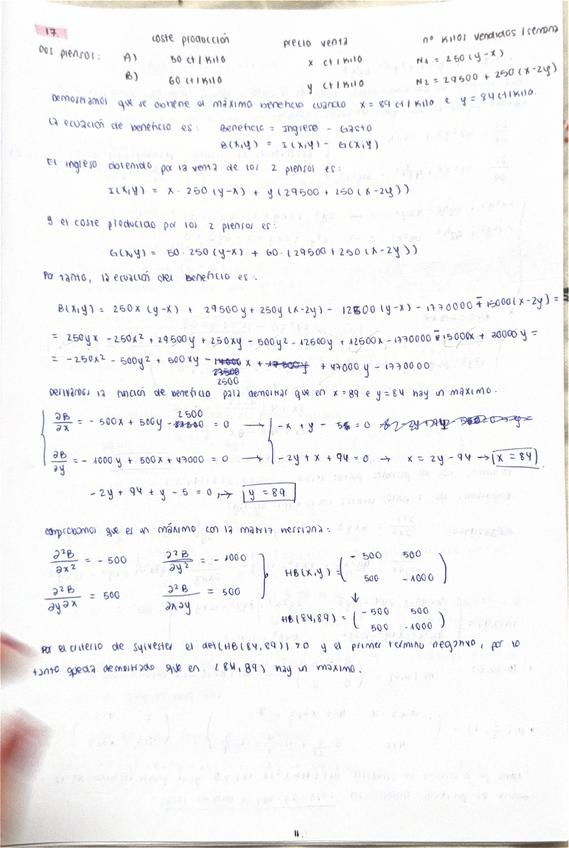 17.
coste producción precio venta nº kilos vendidos / semana
Dos piensos: A) 50 ct / kilo x ct / kilo N₁ = 250 (y-x)
B) 60 ct / kilo y ct / kilo N₂ = 29500 + 250 (x-2y)
Demostramos que se obtiene el máximo beneficio cuando x = 89 ct / kilo e y = 84 ct / kilo.
La ecuación de beneficio es: Beneficio = Ingreso - Gasto
B(x,y) = I(x,y) - G(x,y)
El ingreso obtenido por la venta de los 2 piensos es:
I(x,y) = x · 250 (y-x) + y (29500 + 250 (x-2y))
y el coste producido por los 2 piensos es:
G(x,y) = 50 · 250 (y-x) + 60 · (29500 + 250 (x-2y))
Por tanto, la ecuación del beneficio es:
B(x,y) = 250x (y-x) + 29500y + 250y (x-2y) - 12500 (y-x) - 1770000 - 15000 (x-2y) =
= 250yx - 250x² + 29500y + 250xy - 500y² - 12500y + 12500x - 1770000 - 15000x + 30000y =
= -250x² - 500y² + 500xy - 2500 x + 47000y - 1770000
Derivamos la función de beneficio para demostrar que en x = 89 e y = 84 hay un máximo.
∂B/∂x = -500x + 500y - 2500 = 0 → -x + y - 5 = 0
∂B/∂y = -1000y + 500x + 47000 = 0 → -2y + x + 94 = 0 → x = 2y - 94 → x = 84
-2y + 94 + y - 5 = 0 → y = 89
Comprobamos que es un máximo con la matriz hessiana:
∂²B/∂x² = -500 ∂²B/∂y² = -1000 HB(x,y) = (-500 500
500 -1000)
∂²B/∂y∂x = 500 ∂²B/∂x∂y = 500 ↓
HB(84,89) = (-500 500
500 -1000)
Por el criterio de sylvester el det(HB(84,89)) > 0 y el primer término negativo, por lo
tanto queda demostrado que en (84,89) hay un máximo.
11.